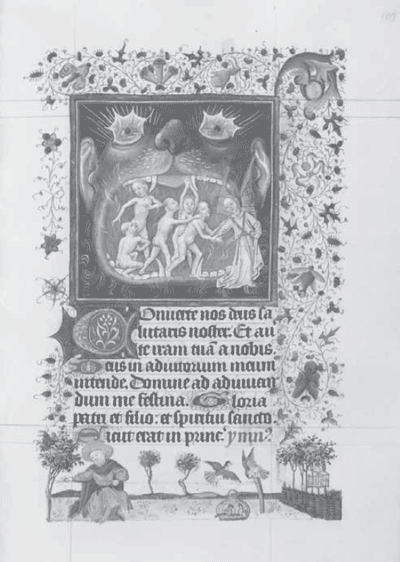 Conuerte nos deus sa
lutaris noster. Et au
te iram tuā a nobis.
Deus in adiutorium meum
intende. Domine ad adiuuan
dum me festina. Gloria
patri et filio: et spiritui sancto
Sicut erat in princ.